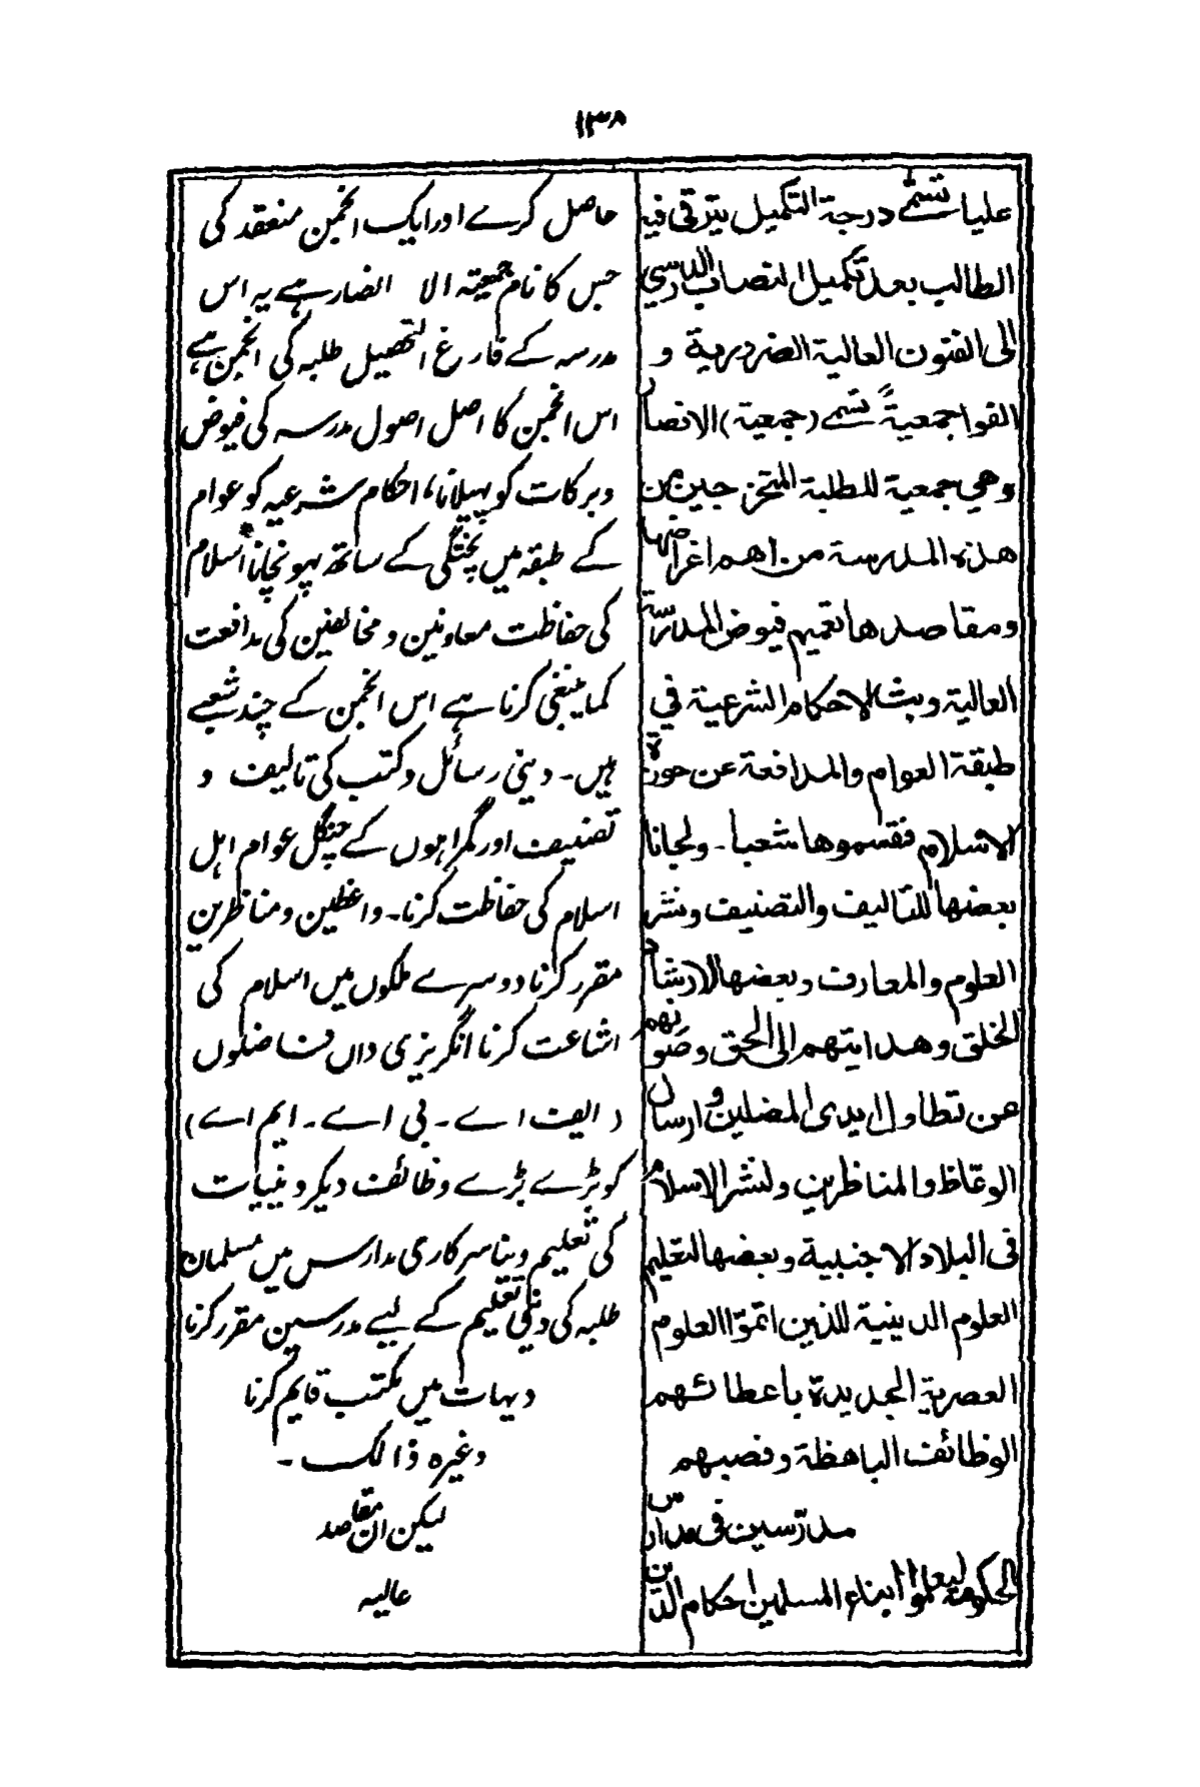 ۱۳۸
علیا تسمّٰی درجة التکمیل یترقی فیه
الطالب بعد تکمیل النصاب الدرسي
الی الفنون العالیة الضروریة و
الفوا جمعیةً تسمی (جمعیة) الانصار
وهي جمعیة للطلبة المتخرجین من
هذه المدرسة من اهم اغراضها
ومقاصدها تعمیم فیوض المدرسة
العالیة وبث الاحکام الشرعیة في
طبقة العوام والمدافعة عن حوزة
الاسلام فقسموها شعبا۔ ولجانا
بعضها للتالیف والتصنیف ونشر
العلوم والمعارف وبعضها لارشاد
الخلق وهدایتهم الی الحق وصونهم
عن تطاول ایدی المضلین وارسال
الوعّاظ والمناظرین ولنشر الاسلام
فی البلاد الاجنبیة وبعضها لتعلیم
العلوم الدینیة للذین اتموّا العلوم
العصریة الجدیدة باعطائهم
الوظائف الباهظة ونصبهم
مدرّسین فی مدارس
الحکومة لیعلموا ابناء المسلمین احکام الدین
حاصل کرے اور ایک انجمن منعقد کی
جس کا نام جمعیتہ الا انصار ہے یہ اس
مدرسہ کے فارغ التحصیل طلبہ کی انجمن ہے
اس انجمن کا اصل اصول مدرسہ کی فیوض
وبرکات کو پھیلانا، احکام شرعیہ کو عوام
کے طبقہ میں پختگی کے ساتھ پہونچانا، اسلام
کی حفاظت معاونین و مخالفین کی مدافعت
کما ینبغی کرنا ہے اس انجمن کے چند شعبے
ہیں۔ دینی رسائل و کتب کی تالیف و
تصنیف اور گمراہوں کے چنگل عوام اہل
اسلام کی حفاظت کرنا۔ واعظین و مناظرین
مقرر کرنا دوسرے ملکوں میں اسلام کی
اشاعت کرنا انگریزی داں فاضلوں
(ایف اے۔ بی اے۔ ایم اے)
کو بڑے بڑے وظائف دیکر دینیات
کی تعلیم دینا سرکاری مدارس میں مسلمان
طلبہ کی دینی تعلیم کے لیے مدرسین مقرر کرنا
دیہات میں مکتب قایم کرنا
وغیرہ ذالک۔
لیکن ان مقاصد
عالیہ